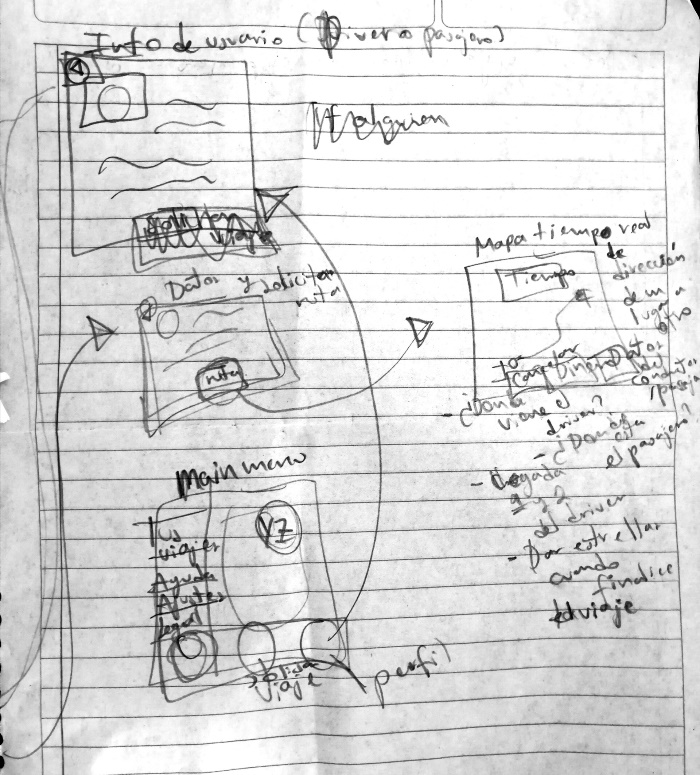 Info de usuario (Driver o pasajero)
Datos y solicitar
ruta
ruta
Mapa tiempo real
de
dirección
de un
lugar a
otro
Tiempo
Cancelar
Datos
del
conductor
/pasajero
- ¿Donde
viene el
driver?
- ¿Donde
está
el pasajero?
- llegada
1 y 2
del driver
- Dar estrellas
cuando
finalice
el viaje
Main menu
Tus
viajes
Ayuda
Ajustes
legal
YZ
Solicitar
viaje
perfil